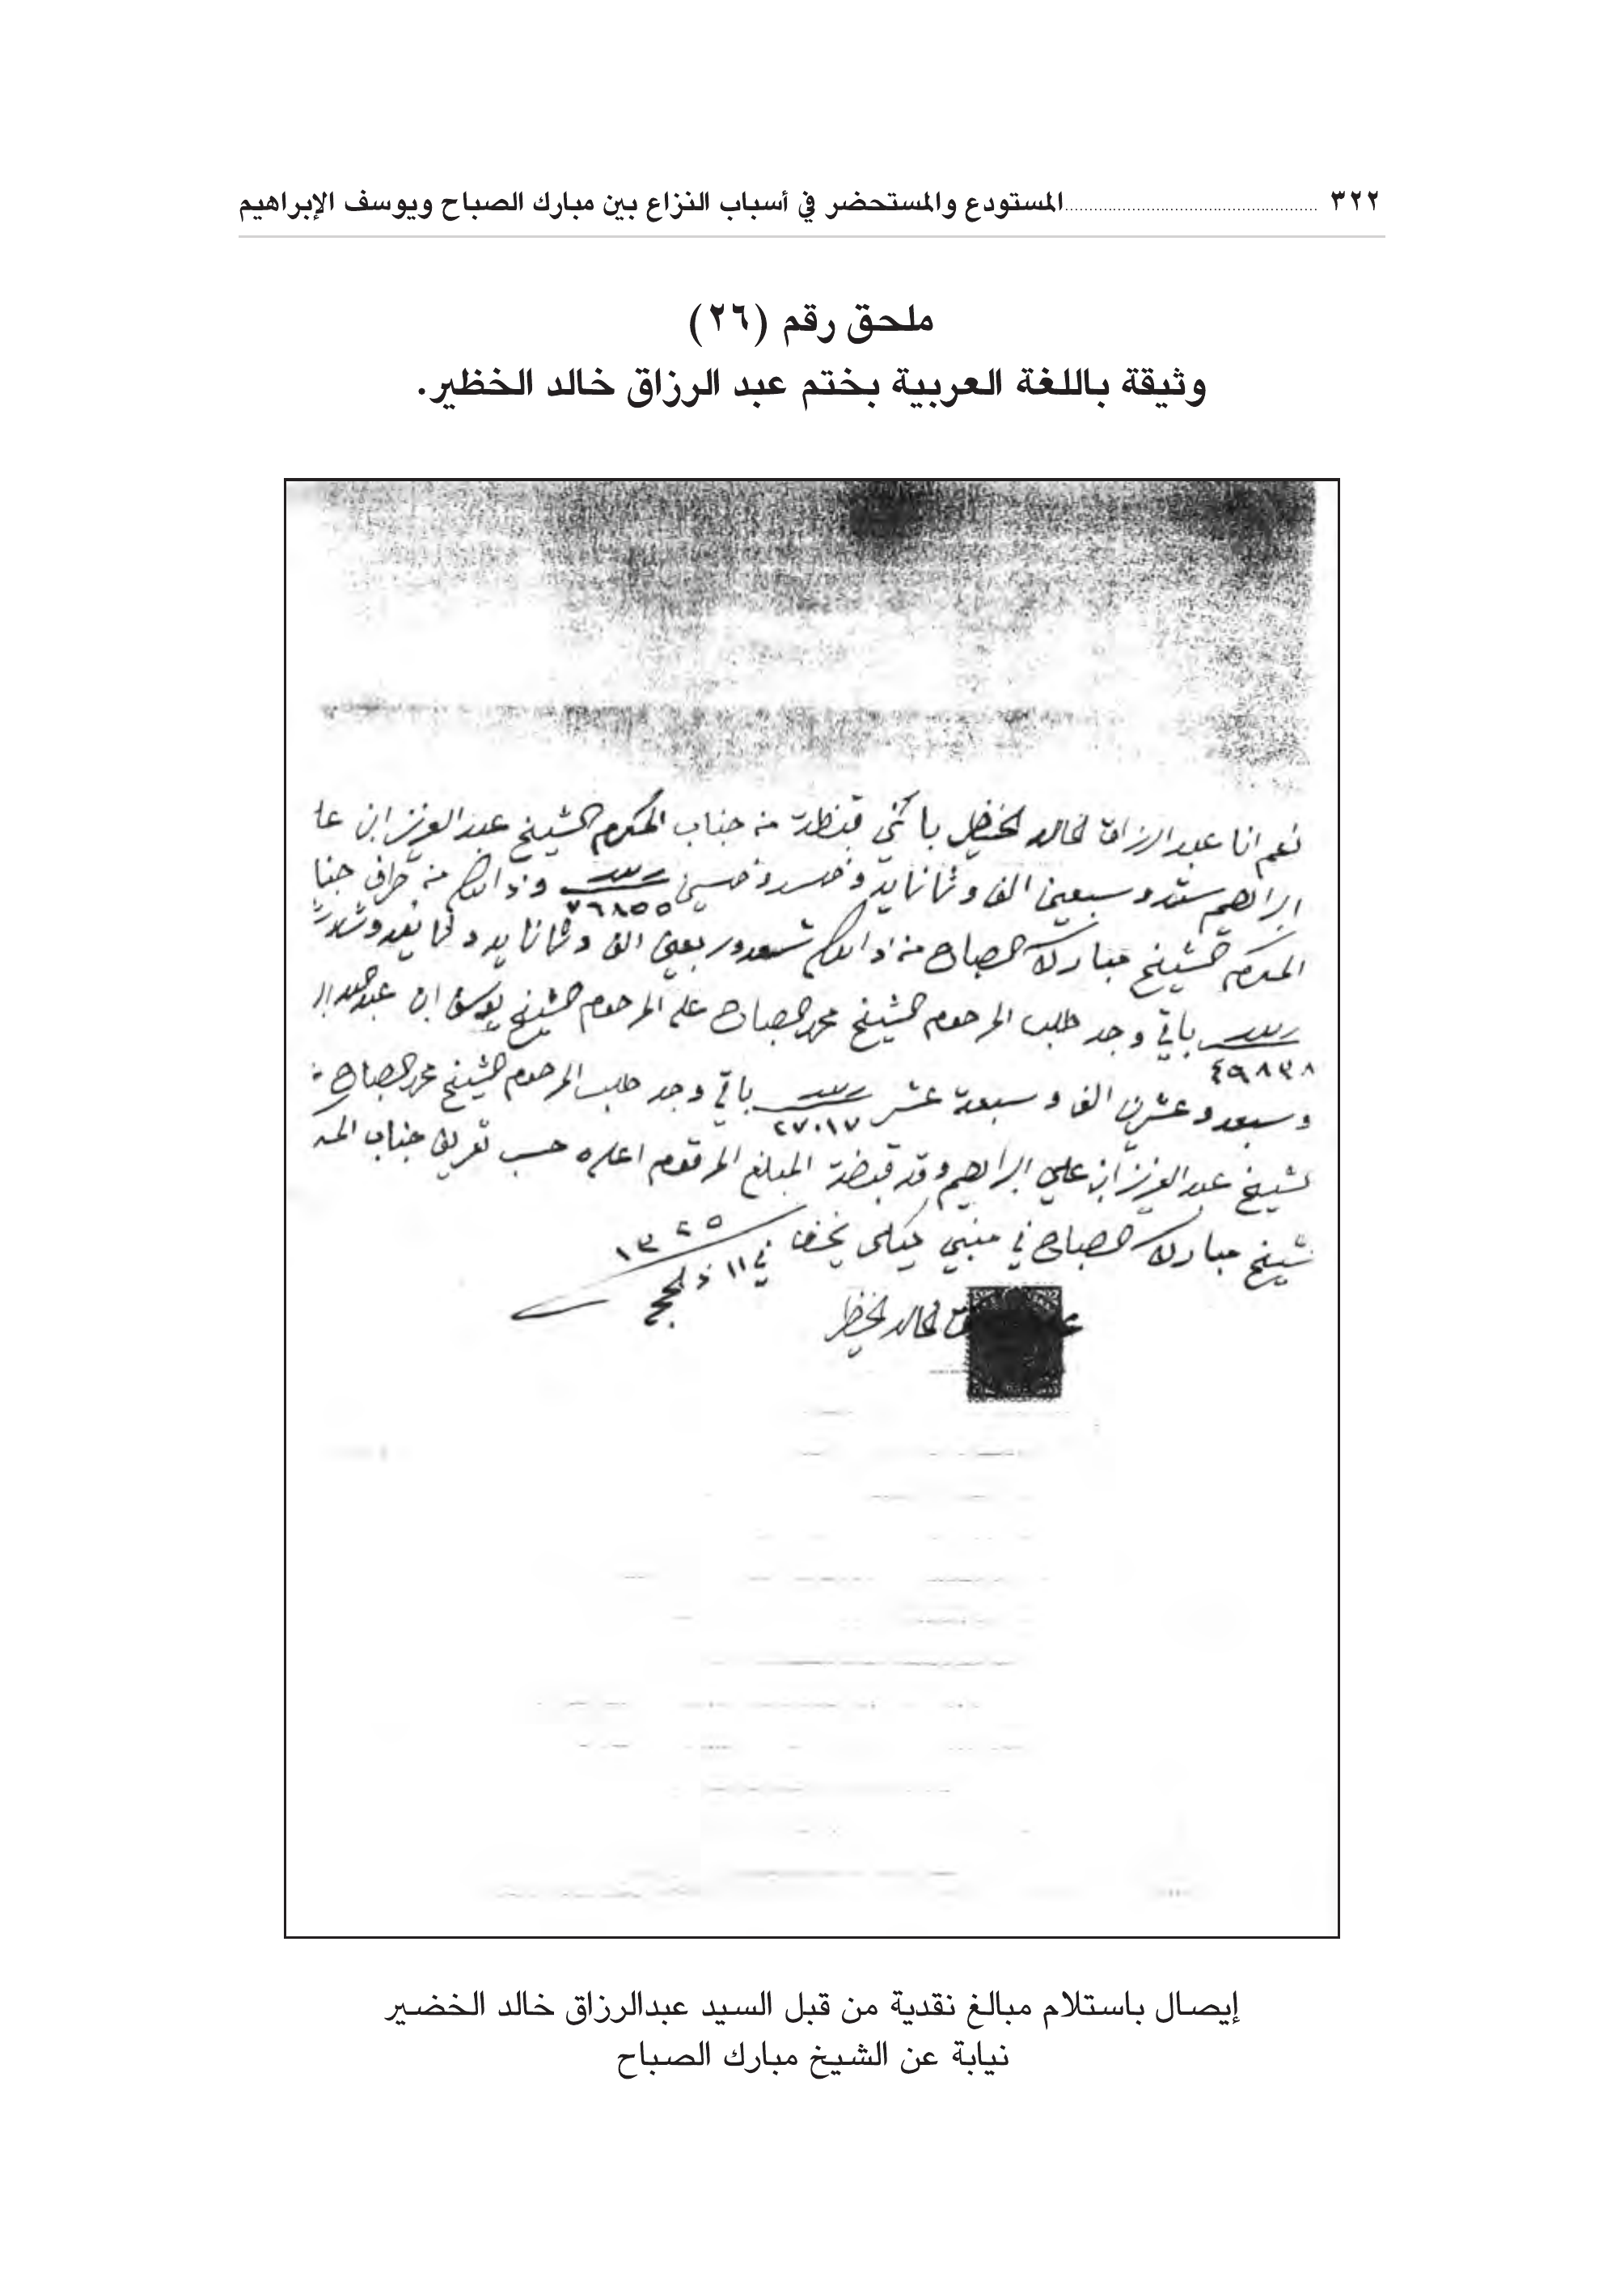 ٣٢٢ المستودع والمستحضر في أسباب النزاع بين مبارك الصباح ويوسف الإبراهيم
ملحق رقم (٢٦)
وثيقة باللغة العربية بختم عبد الرزاق خالد الخظير.
نعم انا عبد الرزاق الخالد الخظير باني قبظت من جناب المكرم الشيخ عبد العزيز ابن
ابراهيم ستة وسبعين الف وثمانماية وخمسة وخمسين ٧٦٨٥٥ وذالك من جناب
المكرم الشيخ مبارك الصباح من ذالك تسعة وربعين الف وثمانماية وثمانية
٤٩٨٣٨ باقي وجد طلب المرحوم الشيخ محمد الصباح على المرحوم الشيخ يوسف ابن
وسبعة وعشرين الف وسبعة عشر ٢٧٠١٧ باقي وجد طلب المرحوم الشيخ محمد الصباح
شيخ عبد العزيز ابن علي ابراهيم وقد قبضة المبلغ المرقوم اعلاه حسب تعريف جناب
شيخ مبارك الصباح في في ١١ ١٣٢٥
خالد الخظير
إيصال باستلام مبالغ نقدية من قبل السيد عبدالرزاق خالد الخضير
نيابة عن الشيخ مبارك الصباح